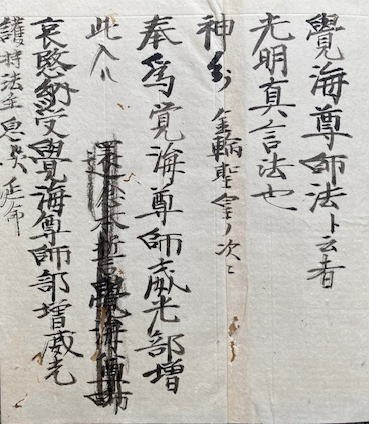 覺海尊師法ト云者
光明真言法也
神分 金輪聖皇ノ次ニ
奉爲覚海尊師威光部増
此入ハ 還念本誓覺海尊師
哀愍納受覺海尊師部増威光
護持法主息災延命